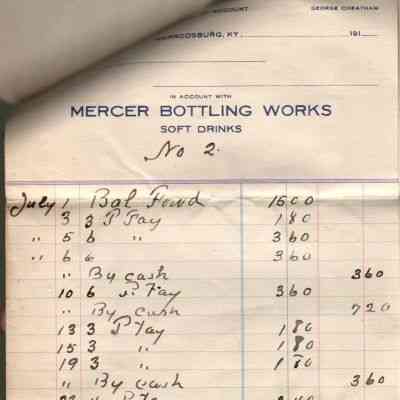 ACCOUNT GEORGE CHEATHAM
KY. 191
IN ACCOUNT WITH
MERCER BOTTLING WORKS
SOFT DRINKS
No 2.
July 1 Bal Forwd 15 00
3 3 P Jay 1 80
" 5 6 " 3 60
" 6 6 3 60
" By cash 3 60
10 6 P. Jay 3 60
" By cash 7 20
13 3 P Jay 1 80
15 3 " 1 80
19 3 " 1 80
" By cash 3 60